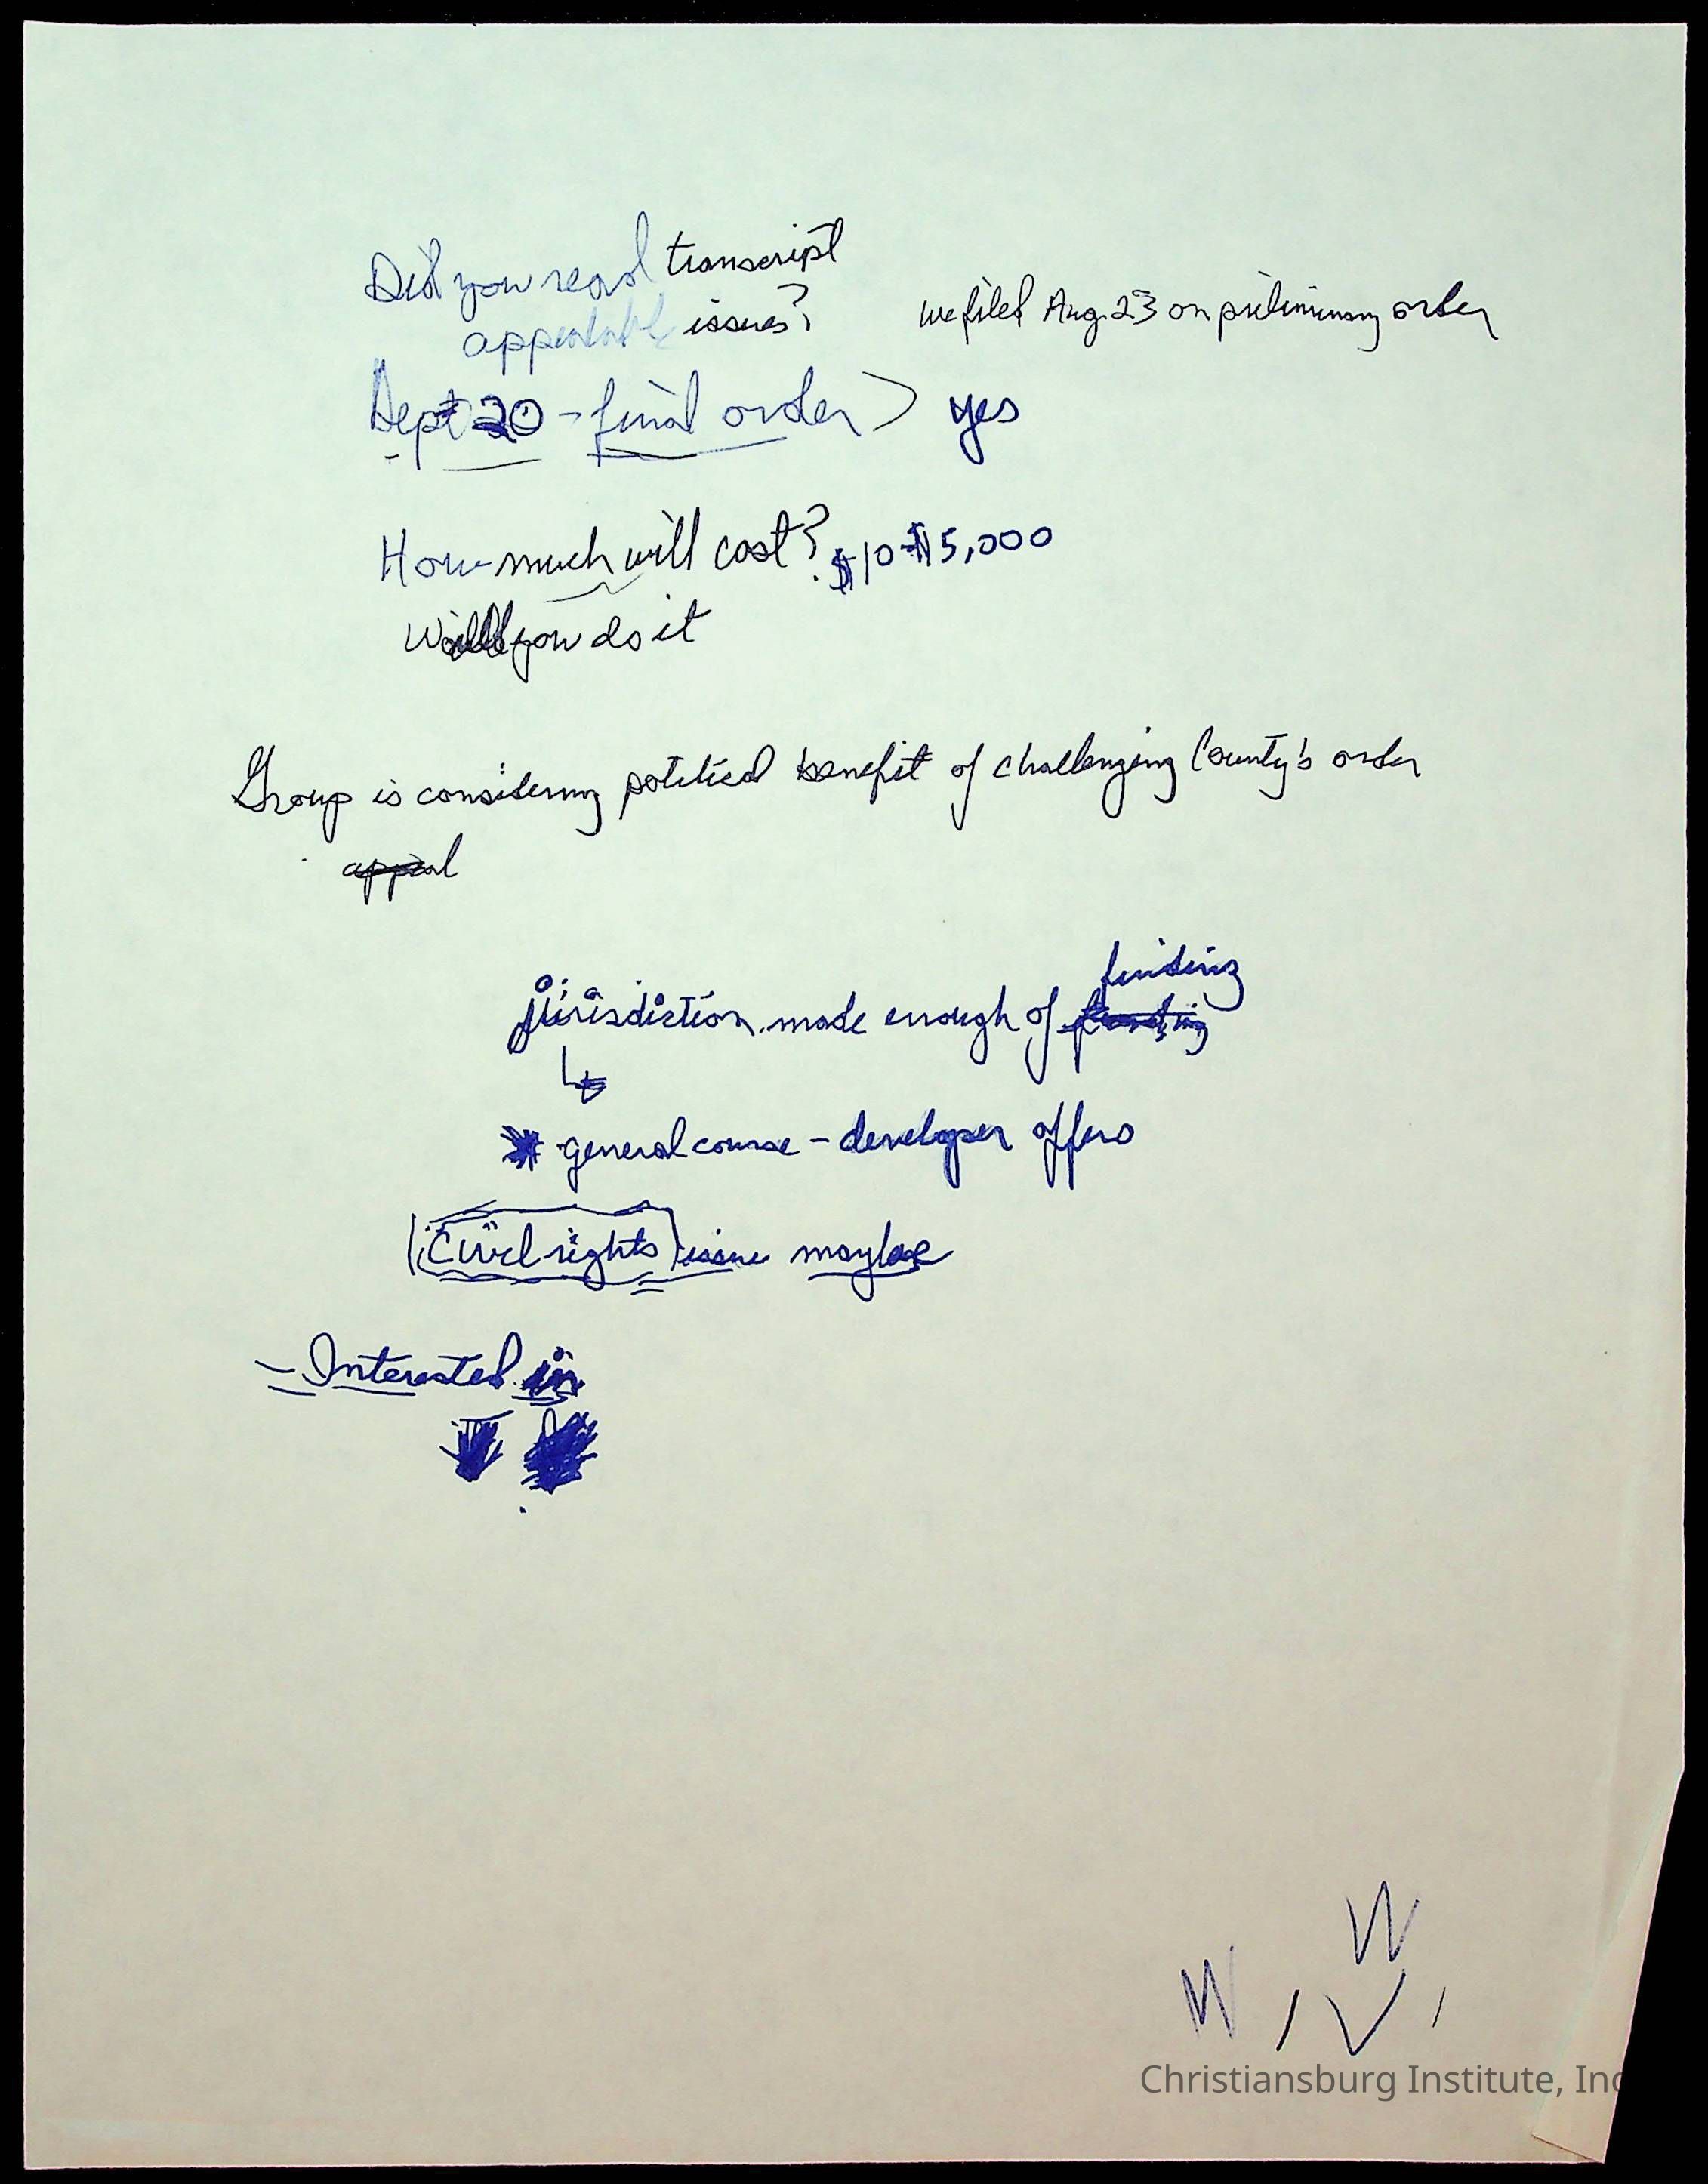 Did you read transcript
appealable issues?
we filed Aug. 23 on preliminary order
Sept 20 - final order > yes
How much will cost? $10-$15,000
Will you do it
Group is considering political benefit of challenging County's order
appeal
finding
jurisdiction made enough of
* general course - developer offers
(Civil rights) issue maybe
- Interested in
W
W / V /
Christiansburg Institute, Inc